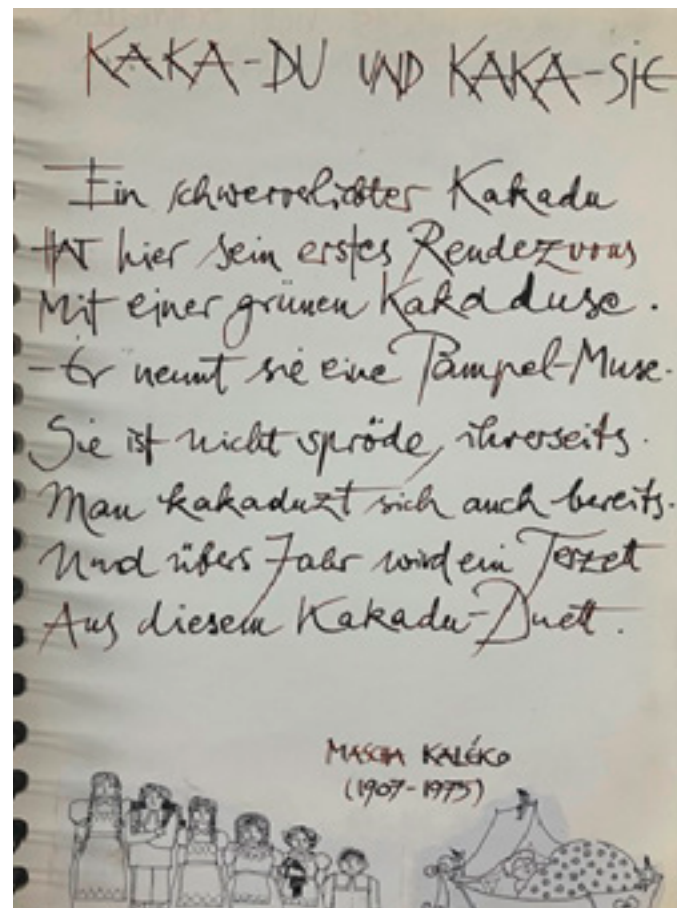 KAKA-DU UND KAKA-SIE
Ein schwerverliebter Kakadu
HAT hier sein erstes Rendezvous
Mit einer grünen Kakaduse.
- Er nennt sie eine Pampel-Muse.
Sie ist nicht spröde, ihrerseits.
Man kakaduzt sich auch bereits.
Und übers Jahr wird ein Terzett
Aus diesem Kakadu-Duett.
MASCHA KALÉKO
(1907-1975)